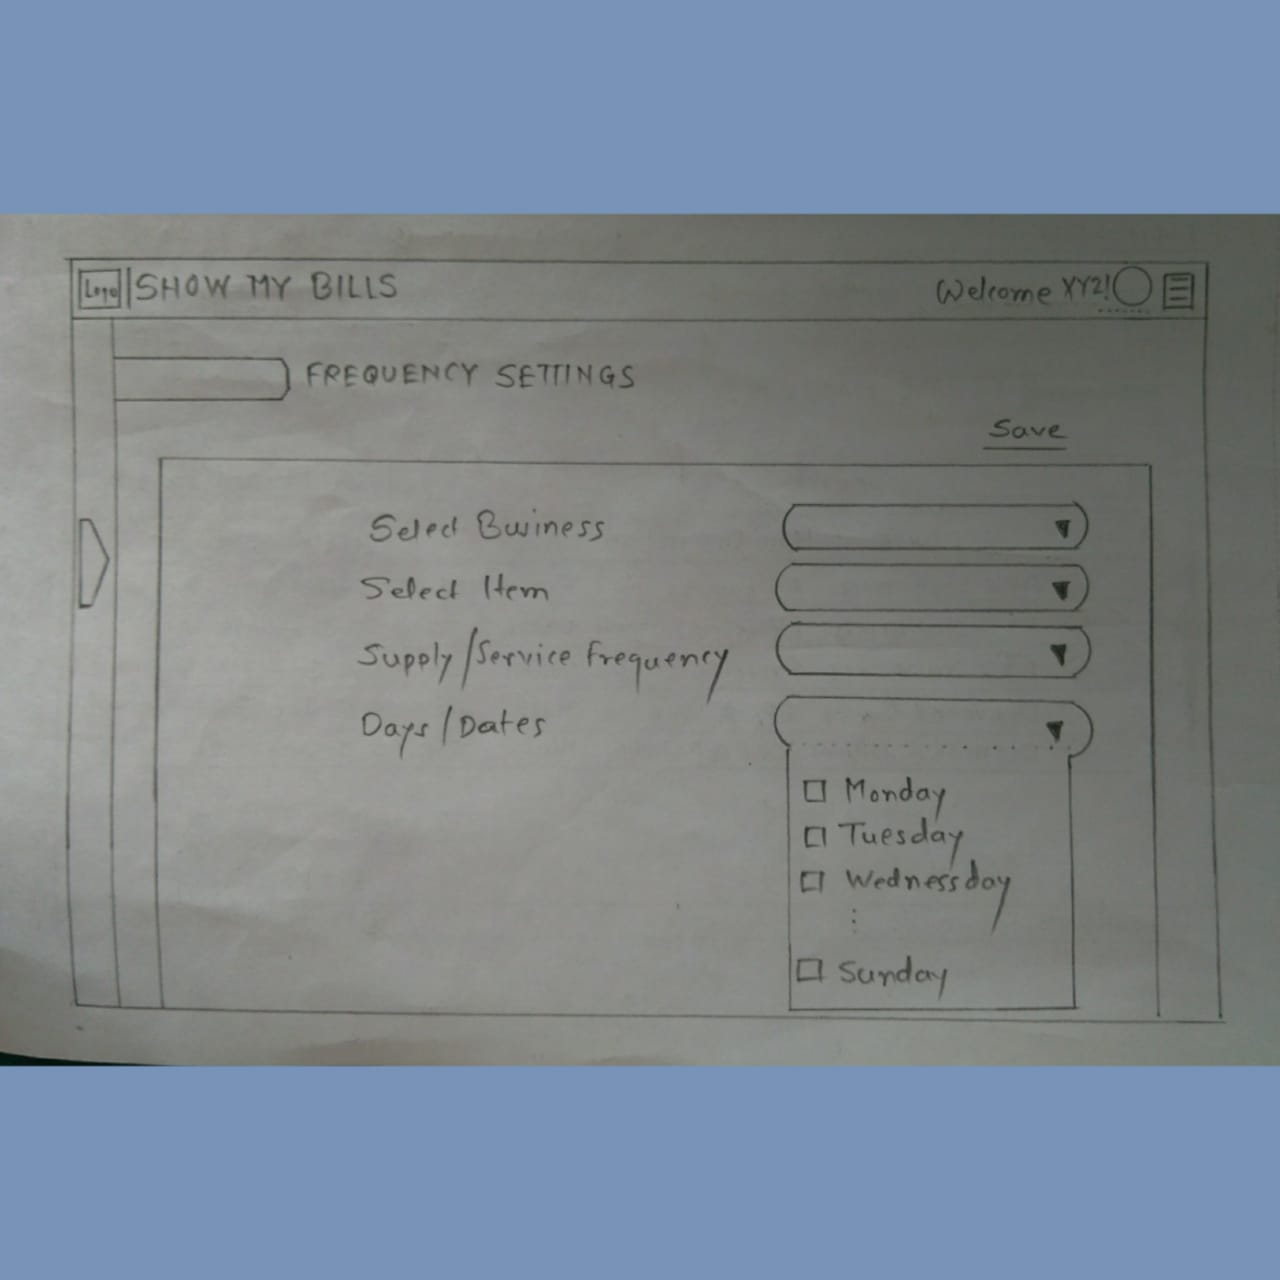 Logo SHOW MY BILLS
Welcome XYZ!
FREQUENCY SETTINGS
Save
Select Business
Select Item
Supply/Service frequency
Days/Dates
Monday
Tuesday
Wednessday
Sunday